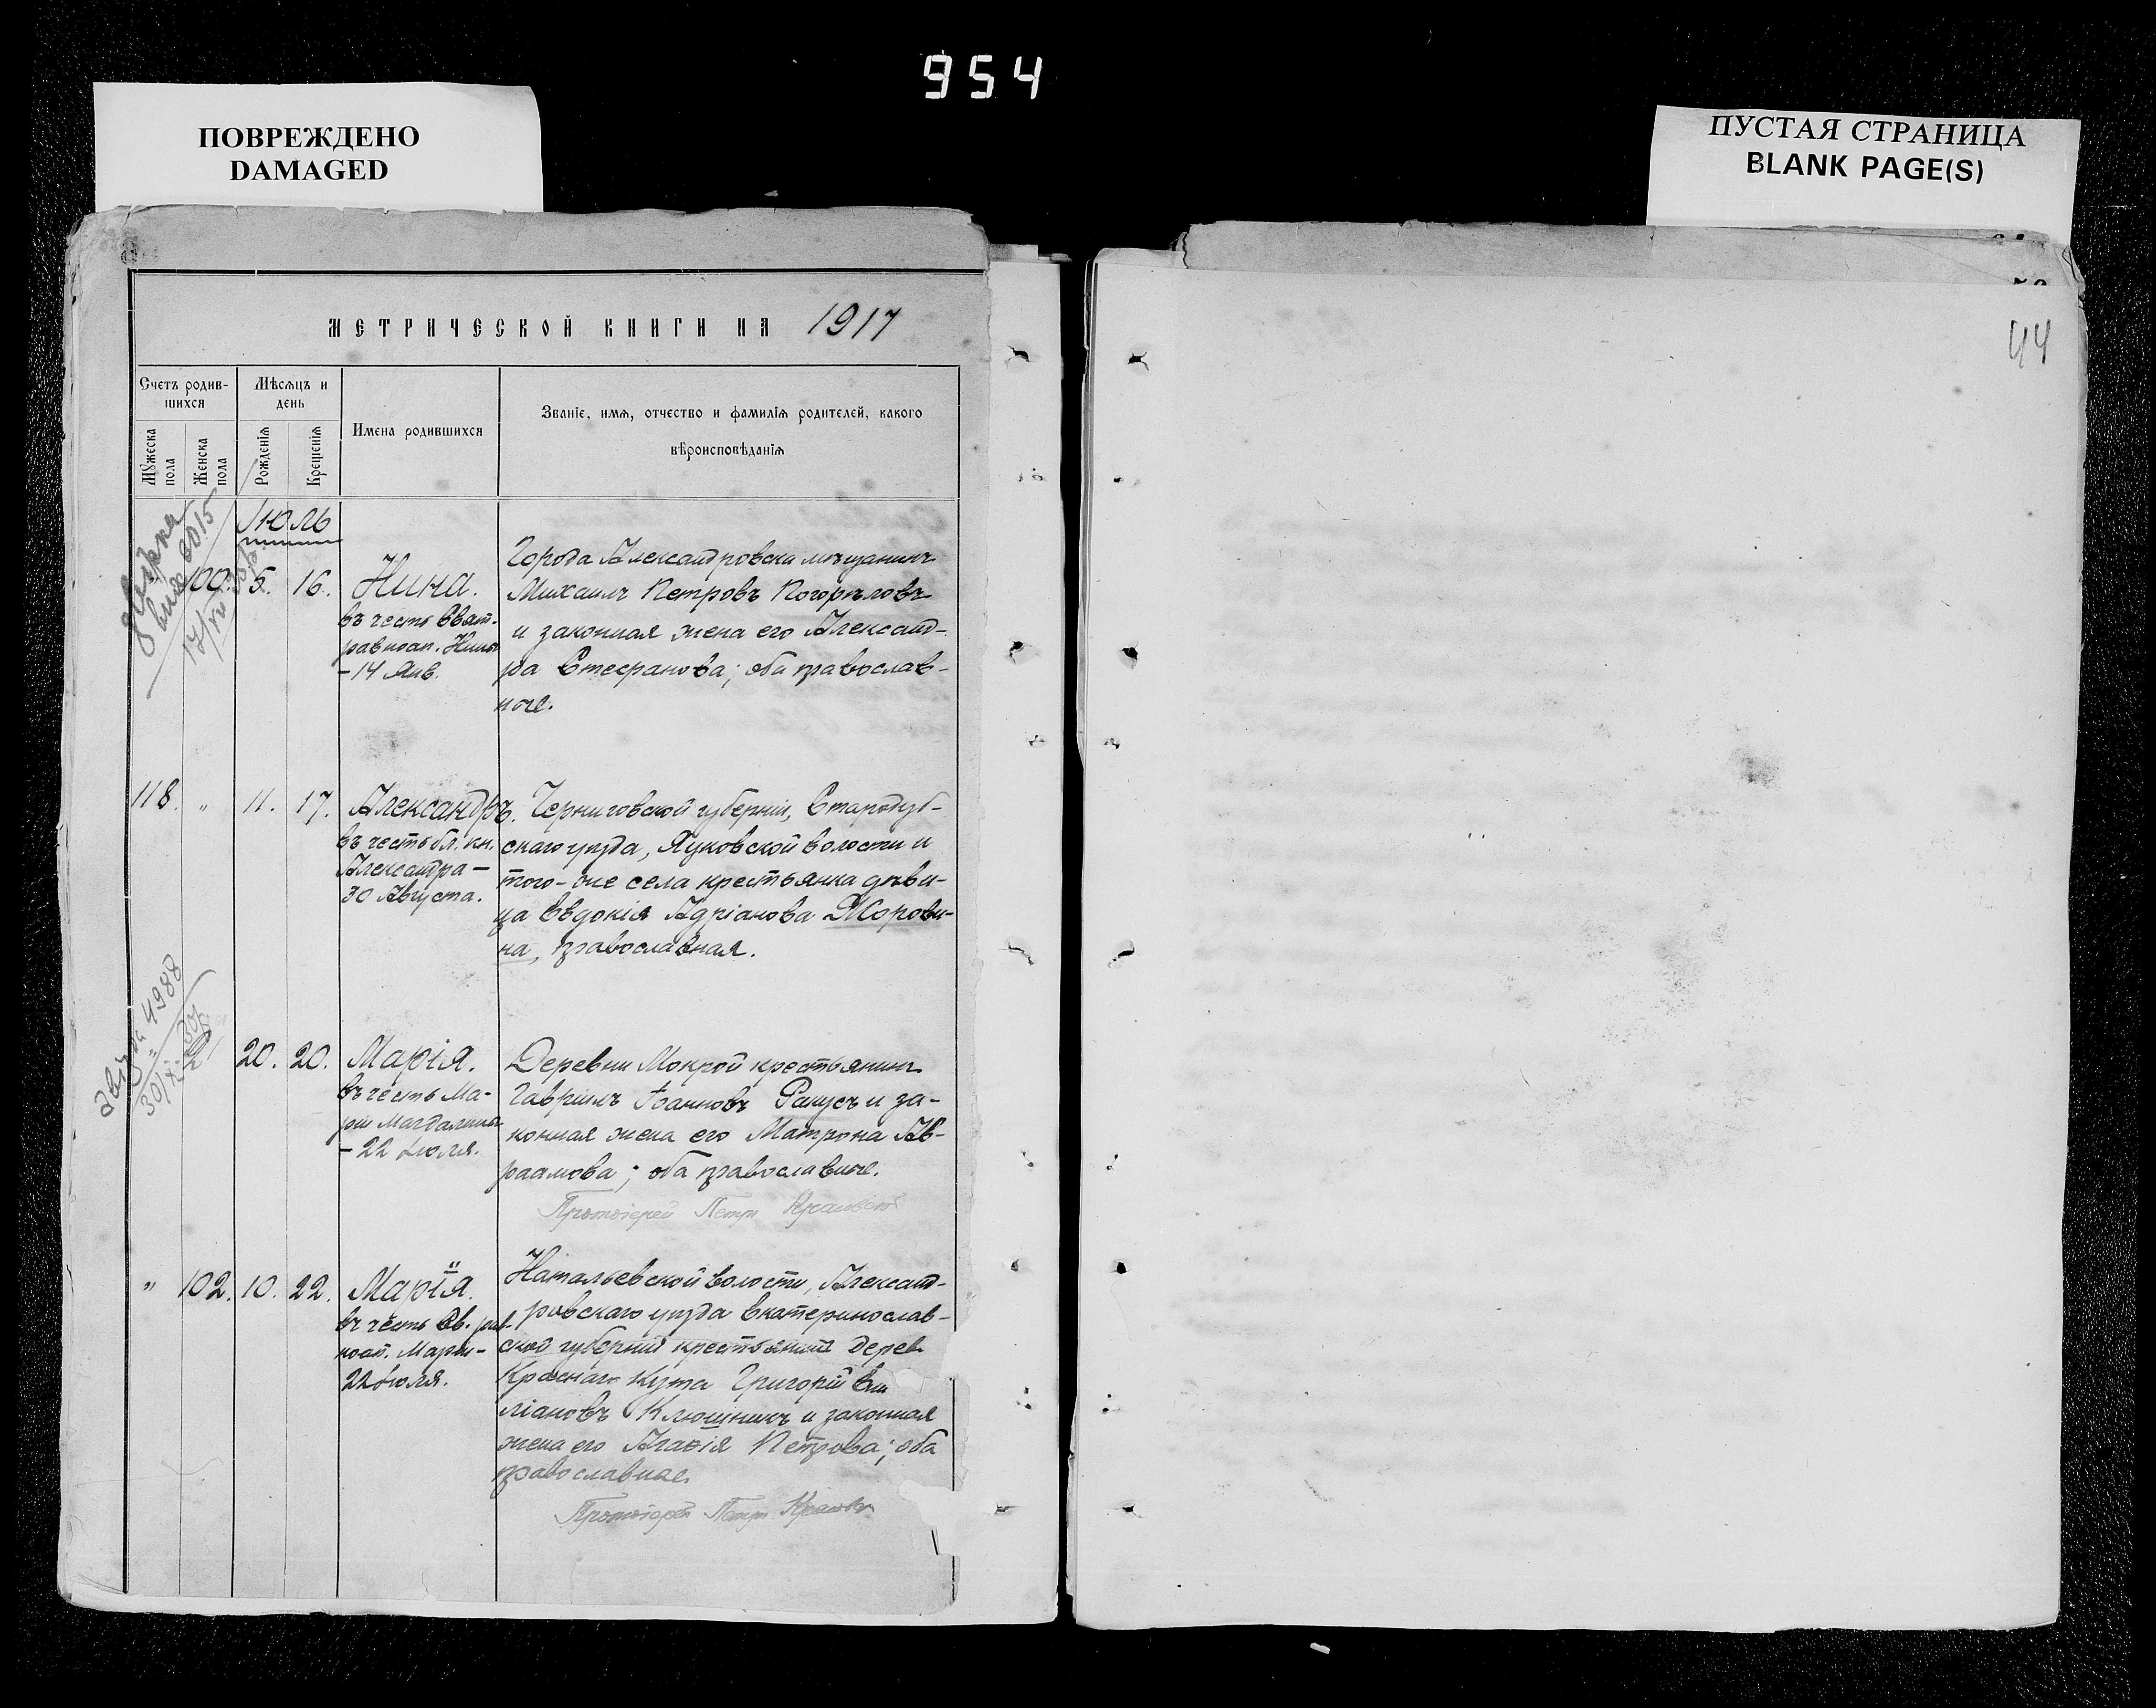 954
ПОВРЕЖДЕНО
DAMAGED
ПУСТАЯ СТРАНИЦА
BLANK PAGE(S)
МЕТРИЧЕСКОЙ КНИГИ НА 1917
Счетъ родив-
шихся
Мѣсяцъ и
день
Имена родившихся
Званіе, имя, отчество и фамилія родителей, какого
вѣроисповѣданія
Мужеска
пола
Женска
пола
Рожденія
Крещенія
Іюль
100. 5. 16. Нина.
въ честь Свят.
равноап. Нины
- 14 Янв.
Города Александровска мѣщанинъ
Михаилъ Петровъ Погорѣловъ
и законная жена его Александ-
ра Стефанова; оба православ-
ные.
118. " 11. 17. Александръ.
въ честь бл. кн.
Александра —
30 Августа.
Черниговской губерніи, Стародуб-
скаго уѣзда, Яцковской волости и
того-же села крестьянка дѣви-
ца Евдокія Адріанова Жорови-
на, православная.
4988
20. 20. Марія.
въ честь Ма-
ріи Магдалины
- 22 Іюля.
Деревни Мокрой крестьянинъ
Гавріилъ Іоанновъ Ракусъ и за-
конная жена его Матрона Ав-
раамова; оба православные.
Протоіерей Петръ
" 102. 10. 22. Марія.
въ честь Св. рав-
ноап. Маріи -
22 Іюля.
Натальевской волости, Александ-
ровскаго уѣзда Екатеринослав-
ской губерніи крестьянинъ дерев.
Краснаго Кута Григорій Еми
ліановъ Клюшникъ и законная
жена его Агафія Петрова; оба
православные.
Протоіерей Петръ
44